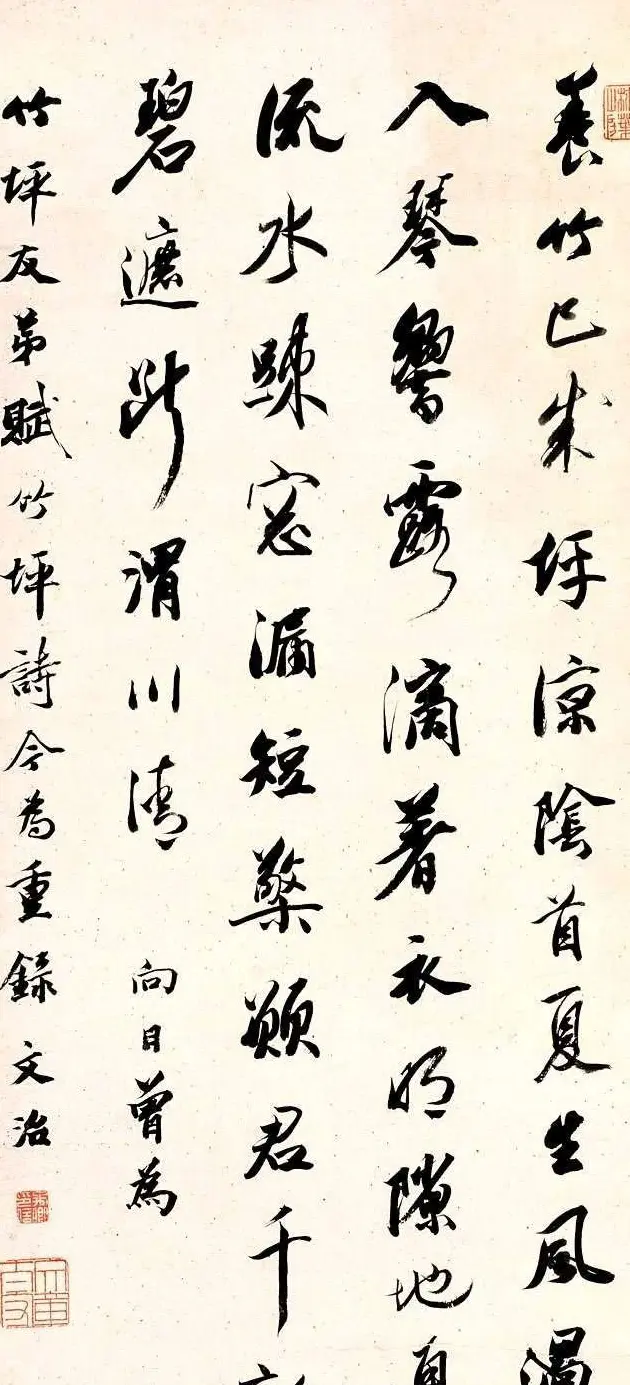 養竹已成坪涼陰首夏生風
入琴響露滴著衣明隙地
流水疎窓漏短檠願君千
碧遮斷渭川清 向日曾為
竹坪友弟賦竹坪詩今為重錄 文治